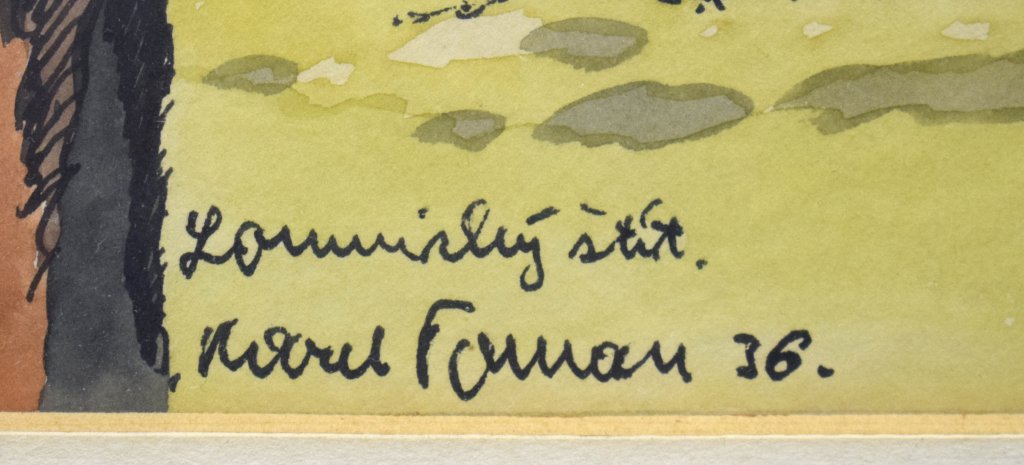 Lomnický štít.
Karel Toman 36.